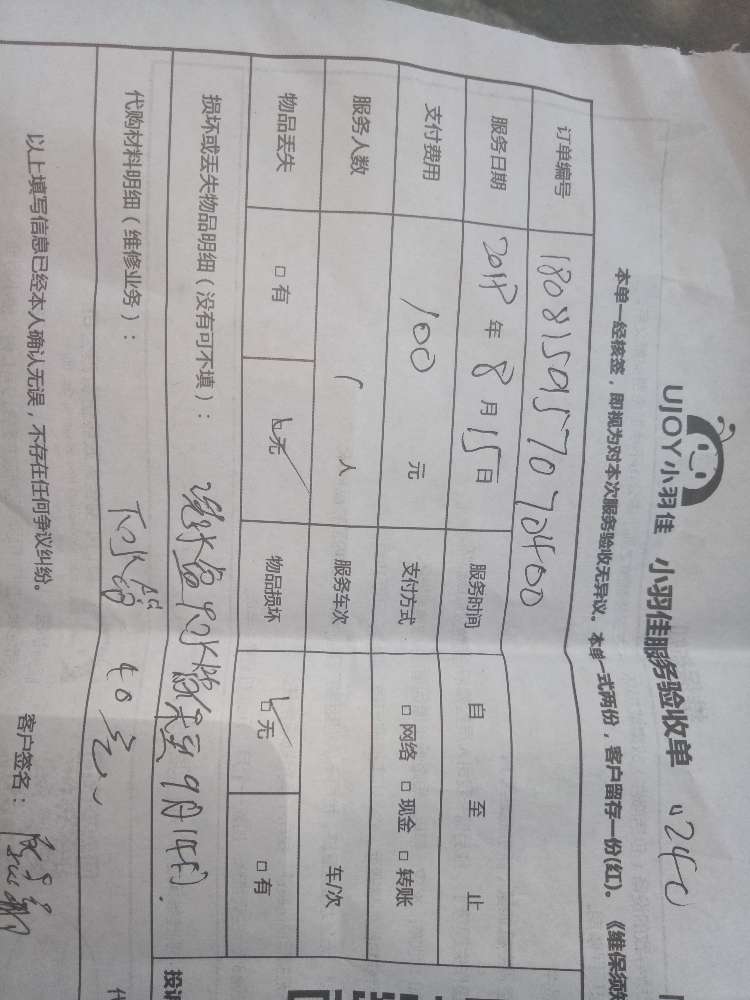 UJOY小羽佳 小羽佳服务验收单 240
本单一经核签，即视为对本次服务验收无异议。本单一式两份，客户留存一份(红)。《维保须
订单编号 180815957072400
服务日期 2018年8月15日 服务时间 自 至 止
支付费用 100 元 支付方式 □网络 □现金 □转账
服务人数 1 人 服务车次 车/次
物品丢失 □有 ☑无 物品损坏 ☑无 □有
损坏或丢失物品明细（没有可不填）： 洗水盆下水 保至9月14日.
代购材料明细（维修业务）： 下水器 40元
以上填写信息已经本人确认无误，不存在任何争议纠纷。 客户签名：
投诉
代